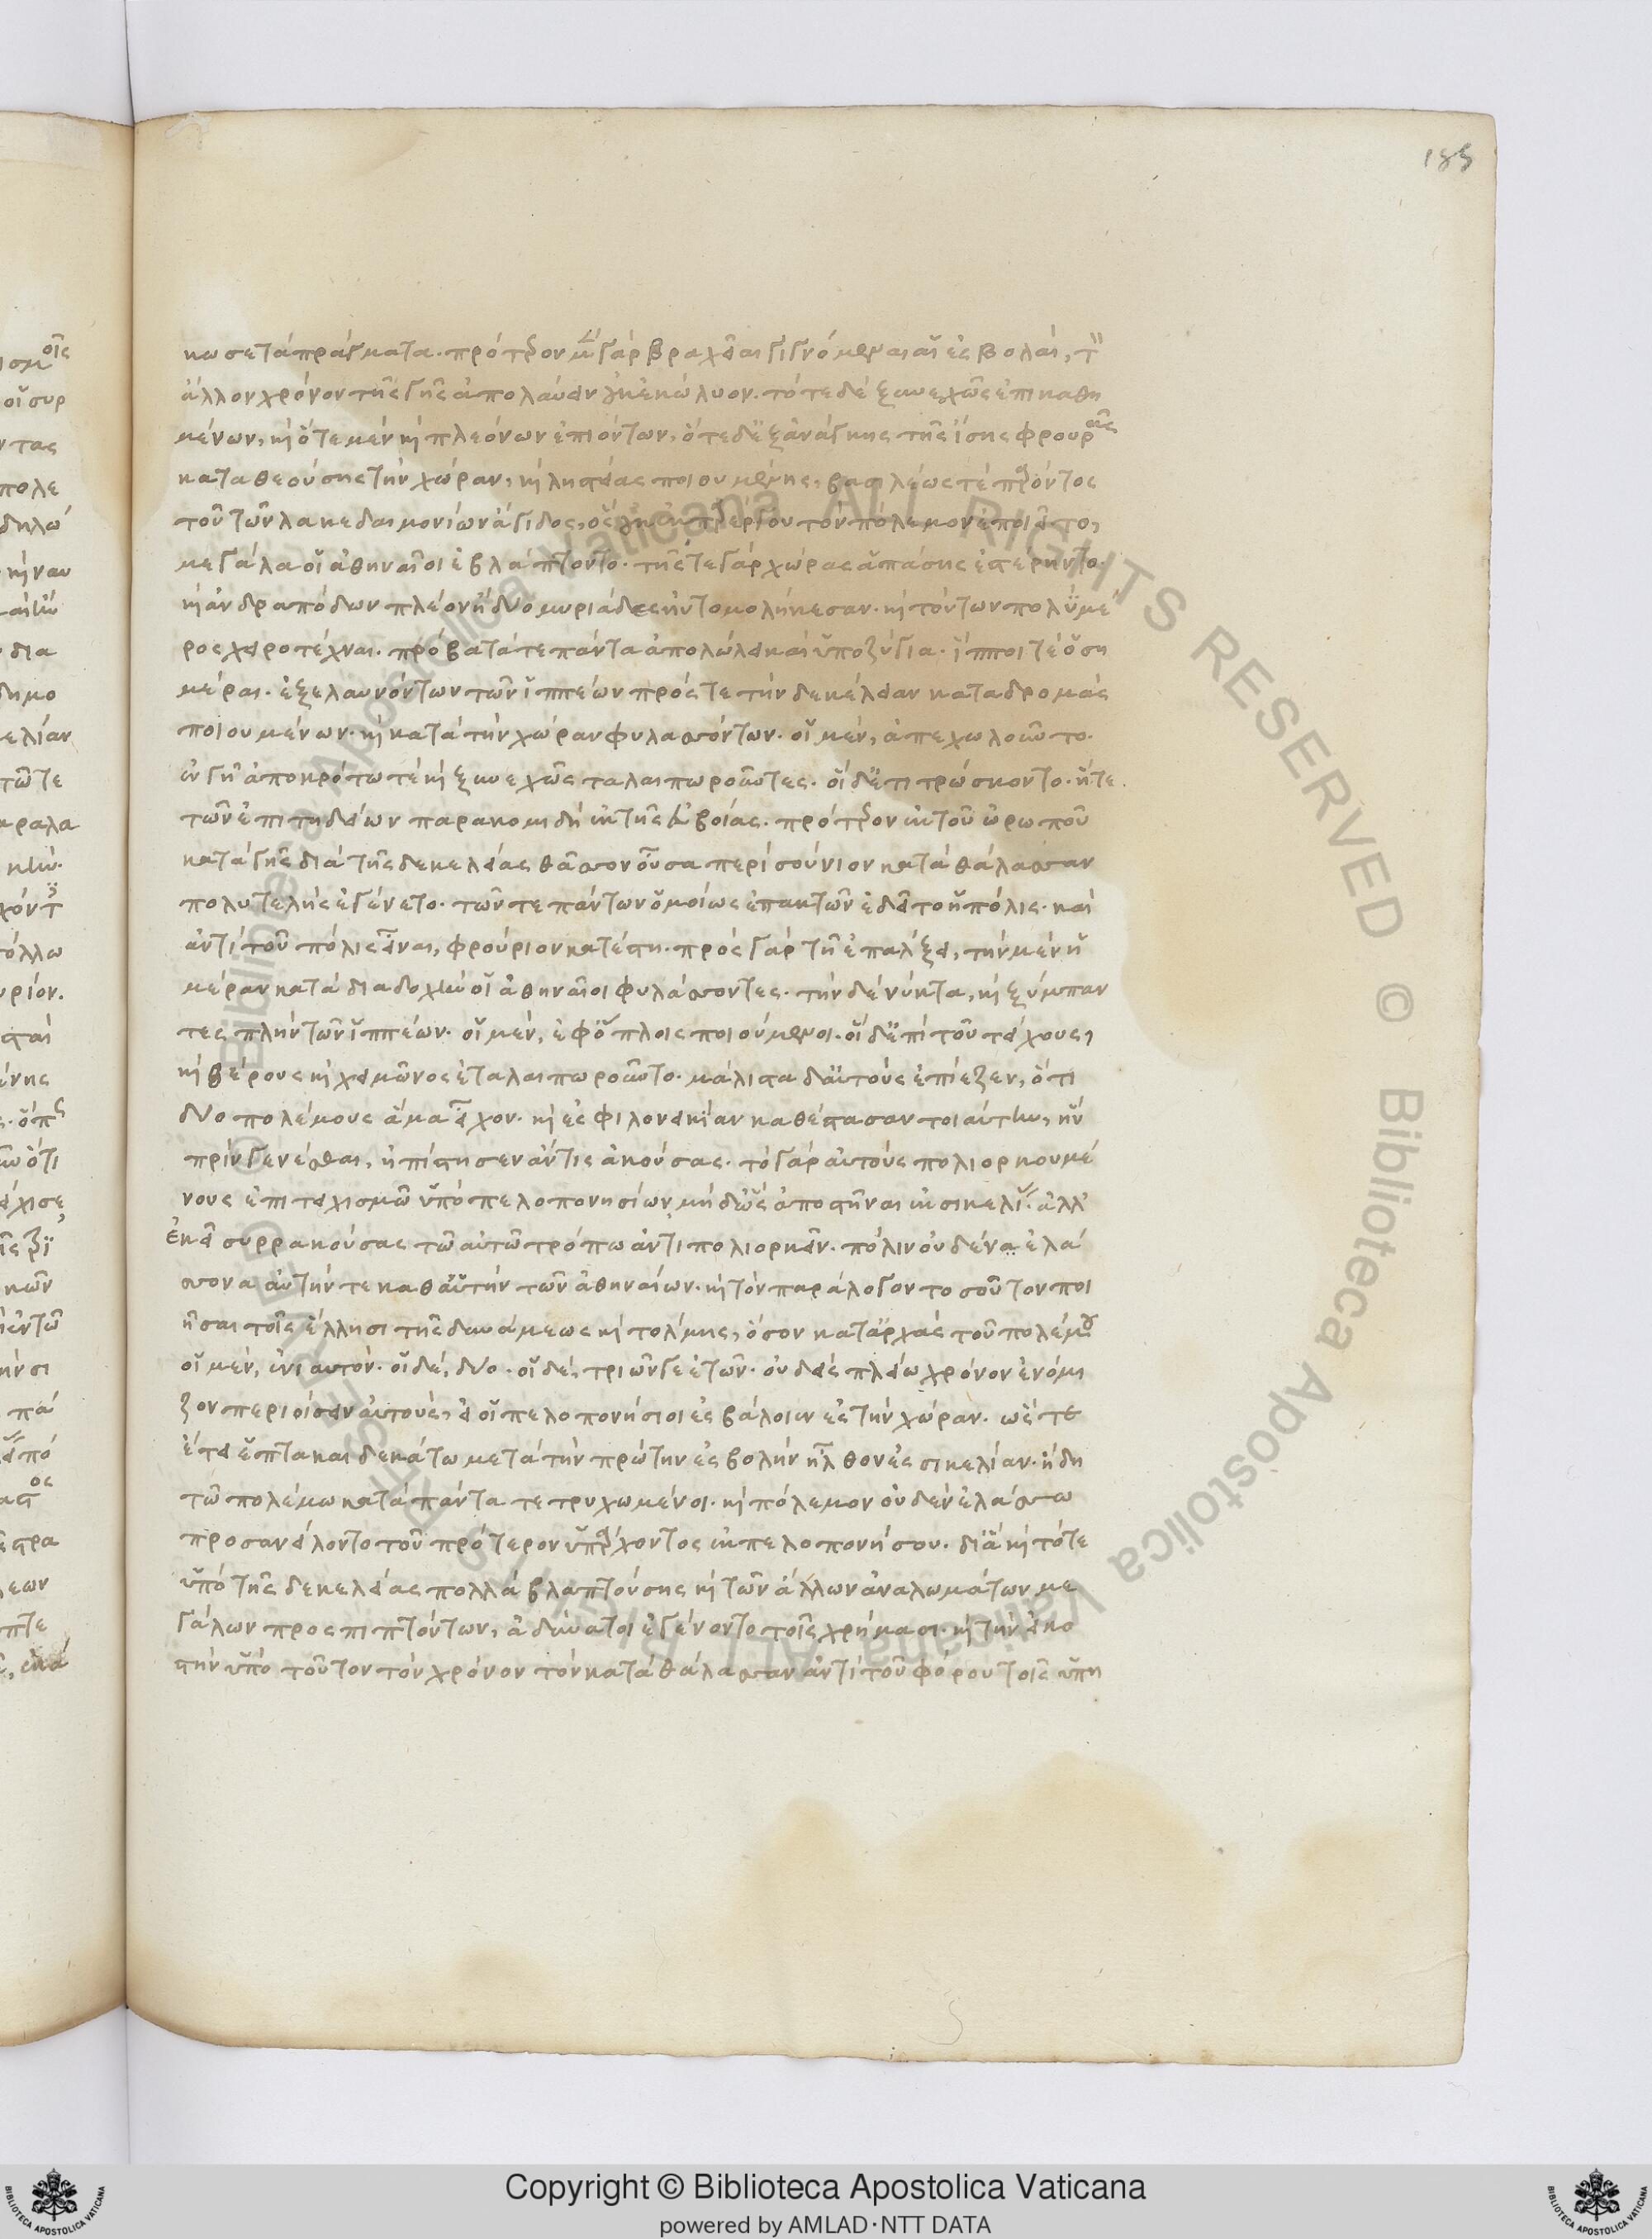 185
κωσε τὰ πράγματα. πρότερον μὲν γὰρ βραχεῖαι γιγνόμεναι αἱ ἐσβολαὶ, τὸν
ἄλλον χρόνον τῆς γῆς ἀπολαύειν οὐκ ἐκώλυον. τότε δὲ ξυνεχῶς ἐπικαθη
μένων, καὶ ὁτὲ μὲν καὶ πλεόνων ἐπιόντων, ὁτὲ δ' ἐξ ἀνάγκης τῆς ἴσης φρουρᾶς
καταθεούσης τὴν χώραν, καὶ ληστείας ποιουμένης, βασιλέως τὲ παρόντος
τοῦ τῶν λακεδαιμονίων ἄγιδος, ὃς οὐκ ἐκ παρέργου τὸν πόλεμον ἐποιεῖτο,
μεγάλα οἱ ἀθηναῖοι ἐβλάπτοντο. τῆς τε γὰρ χώρας ἁπάσης ἐστέρηντο.
καὶ ἀνδραπόδων πλέον ἢ δύο μυριάδες ηὐτομολήκεσαν. καὶ τούτων πολὺ μέ
ρος χειροτέχναι. πρόβατά τε πάντα ἀπολώλει καὶ ὑποζύγια. ἵπποι τὲ ὅση
μέραι. ἐξελαυνόντων τῶν ἱππέων πρός τε τὴν δεκέλειαν καταδρομὰς
ποιουμένων. καὶ κατὰ τὴν χώραν φυλασσόντων. οἱ μὲν, ἀπεχωλοῦντο.
ἐν γῇ ἀποκρότω τὲ καὶ ξυνεχῶς ταλαιπωροῦντες. οἱ δ' ἐτιτρώσκοντο. ἥ τε
τῶν ἐπιτηδείων παρακομιδὴ ἐκ τῆς εὐβοίας. πρότερον ἐκ τοῦ ὠρωποῦ
κατὰ γῆς διὰ τῆς δεκελείας θᾶσσον οὖσα περὶ σούνιον κατὰ θάλασσαν
πολυτελὴς ἐγένετο. τῶν τε πάντων ὁμοίως ἐπακτῶν ἐδεῖτο ἡ πόλις. καὶ
ἀντὶ τοῦ πόλις εἶναι, φρούριον κατέστη. πρὸς γὰρ τῇ ἐπάλξει, τὴν μὲν ἡ
μέραν κατὰ διαδοχὴν οἱ ἀθηναῖοι φυλάσσοντες. τὴν δὲ νύκτα, καὶ ξύμπαν
τες πλὴν τῶν ἱππέων. οἱ μὲν, ἐφ' ὅπλοις ποιούμενοι. οἱ δ' ἐπὶ τοῦ τείχους,
καὶ θέρους καὶ χειμῶνος ἐταλαιπωροῦντο. μάλιστα δ' αὐτοὺς ἐπίεζεν, ὅτι
δύο πολέμους ἅμα εἶχον. καὶ ἐς φιλονεικίαν καθέστασαν τοιαύτην, ἣν
πρὶν γενέσθαι, ἠπίστησεν ἄν τις ἀκούσας. τὸ γὰρ αὐτοὺς πολιορκουμέ
νους ἐπιτειχισμῶ ὑπὸ πελοπονησίων, μὴ δ' ὣς ἀποστῆναι ἐκ σικελίας. ἀλλ'
ἐκεῖ συρρακούσας τῶ αὐτῶ τρόπω ἀντιπολιορκεῖν. πόλιν οὐδένα ἐλά
σσονα αὐτήν τε καθ' αὑτὴν τῶν ἀθηναίων. καὶ τὸν παράλογον τοσοῦτον ποι
ῆσαι τοῖς ἕλλησι τῆς δυνάμεως καὶ τόλμης, ὅσον κατ' ἀρχὰς τοῦ πολέμου
οἱ μὲν, ἐνιαυτόν. οἱ δὲ, δύο. οἱ δὲ, τριῶν γε ἐτῶν. οὐδεὶς πλείω χρόνον ἐνόμι
ζον περιοίσειν αὐτοὺς, εἰ οἱ πελοπονήσιοι ἐσβάλοιεν ἐς τὴν χώραν. ὥστε
ἔτει ἑπτακαιδεκάτω μετὰ τὴν πρώτην ἐσβολὴν ἦλθον ἐς σικελίαν. ἤδη
τῶ πολέμω κατὰ πάντα τετρυχωμένοι. καὶ πόλεμον οὐδὲν ἐλάσσω
προσανείλοντο τοῦ πρότερον ὑπάρχοντος ἐκ πελοπονήσου. δι' ἃ καὶ τότε
ὑπὸ τῆς δεκελείας πολλὰ βλαπτούσης καὶ τῶν ἄλλων ἀναλωμάτων με
γάλων προσπιπτόντων, ἀδύνατοι ἐγένοντο τοῖς χρήμασι. καὶ τὴν εἰκο
στὴν ὑπὸ τοῦτον τὸν χρόνον τῶν κατὰ θάλασσαν ἀντὶ τοῦ φόρου τοῖς ὑπη
Copyright © Biblioteca Apostolica Vaticana
powered by AMLAD·NTT DATA